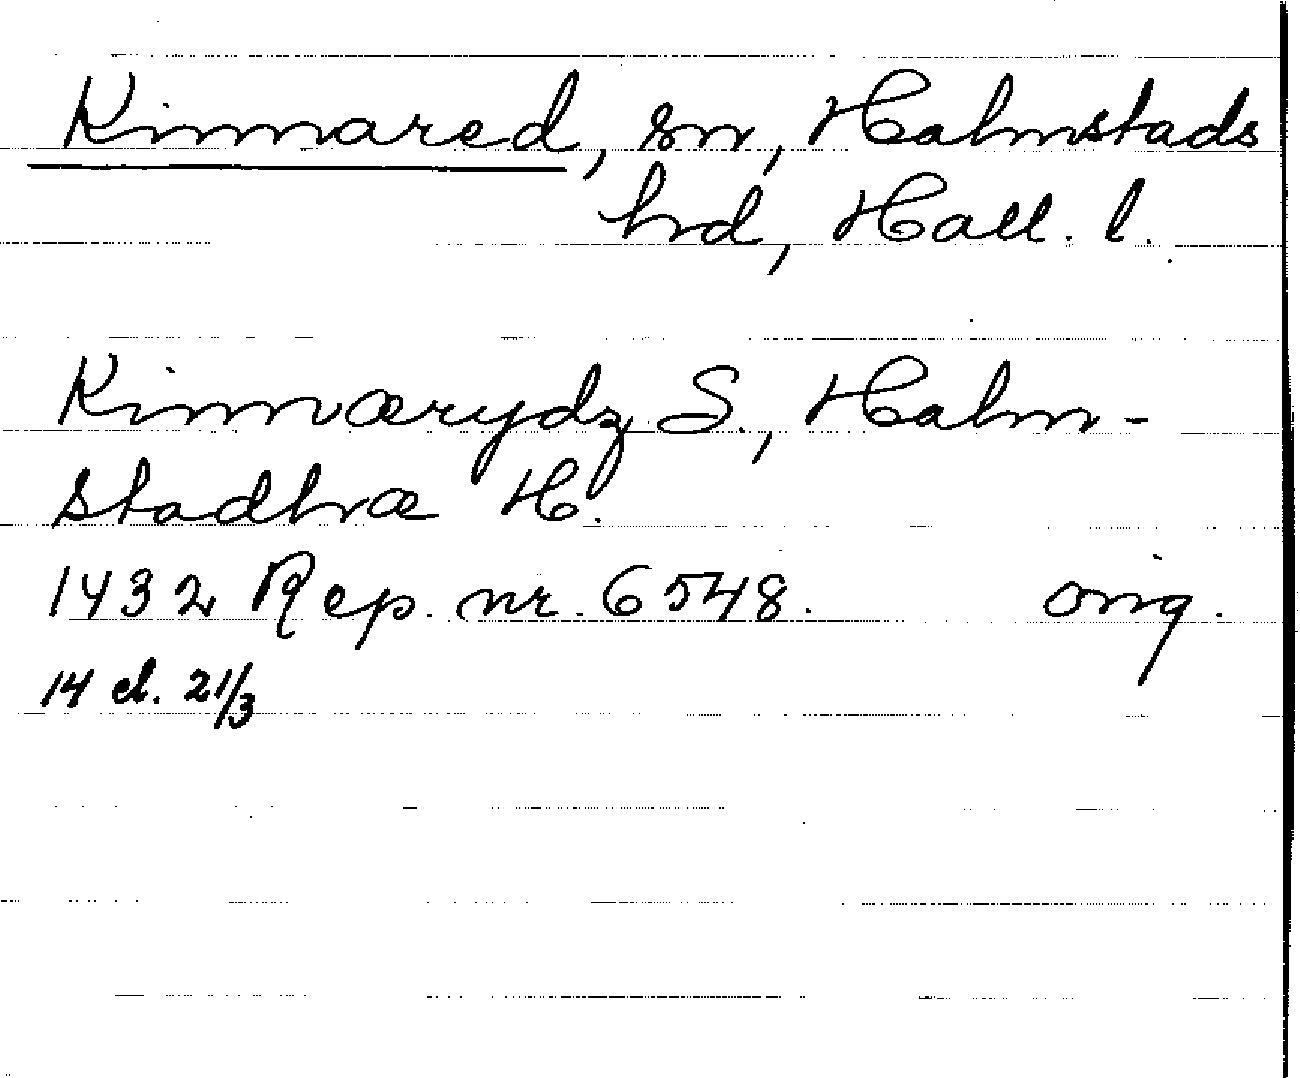 Kinnared, sn, Halmstads
hd, Hall. l.
Kinnærydz S., Halm-
stadhræ H.
1432 Rep. nr. 6548. orig.
14 d. 21/3